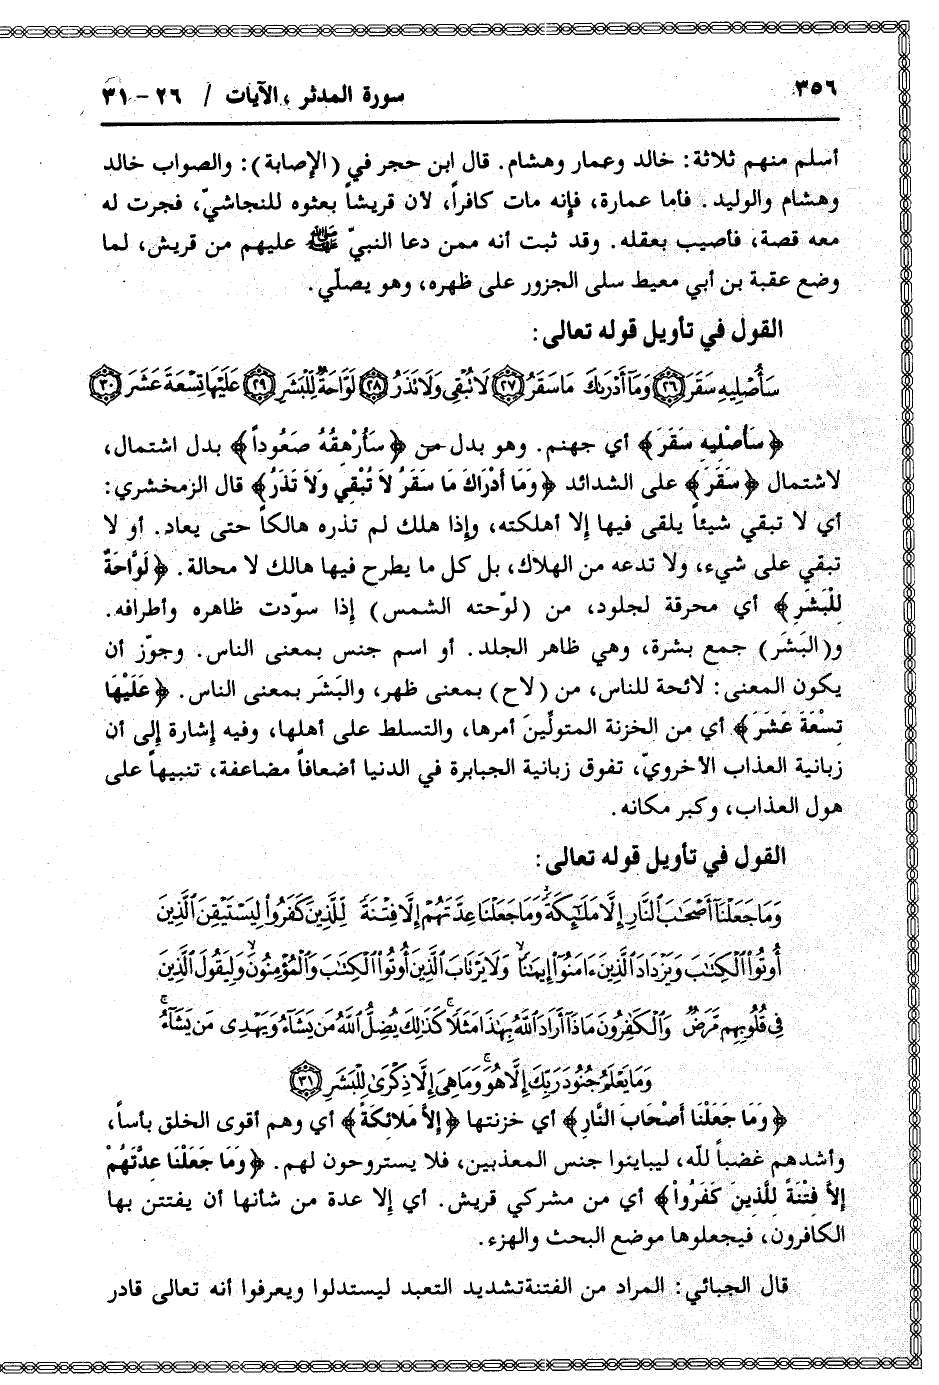 ٣٥٦ سورة المدثر، الآيات / ٢٦ - ٣١
أسلم منهم ثلاثة: خالد وعمار وهشام. قال ابن حجر في (الإصابة): والصواب خالد
وهشام والوليد. فأما عمارة، فإنه مات كافراً، لأن قريشاً بعثوه للنجاشيّ، فجرت له
معه قصة، فأصيب بعقله. وقد ثبت أنه ممن دعا النبيّ ﷺ عليهم من قريش، لما
وضع عقبة بن أبي معيط سلى الجزور على ظهره، وهو يصلّي.
القول في تأويل قوله تعالى:
سَأُصْلِيهِ سَقَرَ ٢٦ وَمَآ أَدْرَىٰكَ مَا سَقَرُ ٢٧ لَا تُبْقِى وَلَا تَذَرُ ٢٨ لَوَّاحَةٌ لِّلْبَشَرِ ٢٩ عَلَيْهَا تِسْعَةَ عَشَرَ ٣٠
﴿سَأُصْلِيهِ سَقَرَ﴾ أي جهنم. وهو بدل من ﴿سَأُرْهِقُهُ صَعُوداً﴾ بدل اشتمال،
لاشتمال ﴿سَقَرَ﴾ على الشدائد ﴿وَمَا أَدْرَاكَ مَا سَقَرُ لاَ تُبْقِي وَلاَ تَذَرُ﴾ قال الزمخشري:
أي لا تبقي شيئاً يلقى فيها إلا أهلكته، وإذا هلك لم تذره هالكاً حتى يعاد. أو لا
تبقي على شيء، ولا تدعه من الهلاك، بل كل ما يطرح فيها هالك لا محالة. ﴿لَوَّاحَةٌ
لِلْبَشَرِ﴾ أي محرقة لجلود، من (لوّحته الشمس) إذا سوّدت ظاهره وأطرافه.
و(البَشَر) جمع بشرة، وهي ظاهر الجلد. أو اسم جنس بمعنى الناس. وجوّز أن
يكون المعنى: لائحة للناس، من (لاح) بمعنى ظهر، والبَشَر بمعنى الناس. ﴿عَلَيْهَا
تِسْعَةَ عَشَرَ﴾ أي من الخزنة المتولِّينَ أمرها، والتسلط على أهلها، وفيه إشارة إلى أن
زبانية العذاب الأخرويّ، تفوق زبانية الجبابرة في الدنيا أضعافاً مضاعفة، تنبيهاً على
هول العذاب، وكبر مكانه.
القول في تأويل قوله تعالى:
وَمَا جَعَلْنَآ أَصْحَٰبَ ٱلنَّارِ إِلَّا مَلَٰٓئِكَةً ۙ وَمَا جَعَلْنَا عِدَّتَهُمْ إِلَّا فِتْنَةً لِّلَّذِينَ كَفَرُوا۟ لِيَسْتَيْقِنَ ٱلَّذِينَ
أُوتُوا۟ ٱلْكِتَٰبَ وَيَزْدَادَ ٱلَّذِينَ ءَامَنُوٓا۟ إِيمَٰنًا ۙ وَلَا يَرْتَابَ ٱلَّذِينَ أُوتُوا۟ ٱلْكِتَٰبَ وَٱلْمُؤْمِنُونَ ۙ وَلِيَقُولَ ٱلَّذِينَ
فِى قُلُوبِهِم مَّرَضٌ وَٱلْكَٰفِرُونَ مَاذَآ أَرَادَ ٱللَّهُ بِهَٰذَا مَثَلًا ۚ كَذَٰلِكَ يُضِلُّ ٱللَّهُ مَن يَشَآءُ وَيَهْدِى مَن يَشَآءُ ۚ
وَمَا يَعْلَمُ جُنُودَ رَبِّكَ إِلَّا هُوَ ۚ وَمَا هِىَ إِلَّا ذِكْرَىٰ لِلْبَشَرِ ٣١
﴿وَمَا جَعَلْنَا أَصْحَابَ النَّارِ﴾ أي خزنتها ﴿إِلاَّ مَلاَئِكَةً﴾ أي وهم أقوى الخلق بأساً،
وأشدهم غضباً للّه، ليباينوا جنس المعذبين، فلا يستروحون لهم. ﴿وَمَا جَعَلْنَا عِدَّتَهُمْ
إِلاَّ فِتْنَةً لِلَّذِينَ كَفَرُواْ﴾ أي من مشركي قريش. أي إلا عدة من شأنها أن يفتتن بها
الكافرون، فيجعلوها موضع البحث والهزء.
قال الجبائي: المراد من الفتنةتشديد التعبد ليستدلوا ويعرفوا أنه تعالى قادر